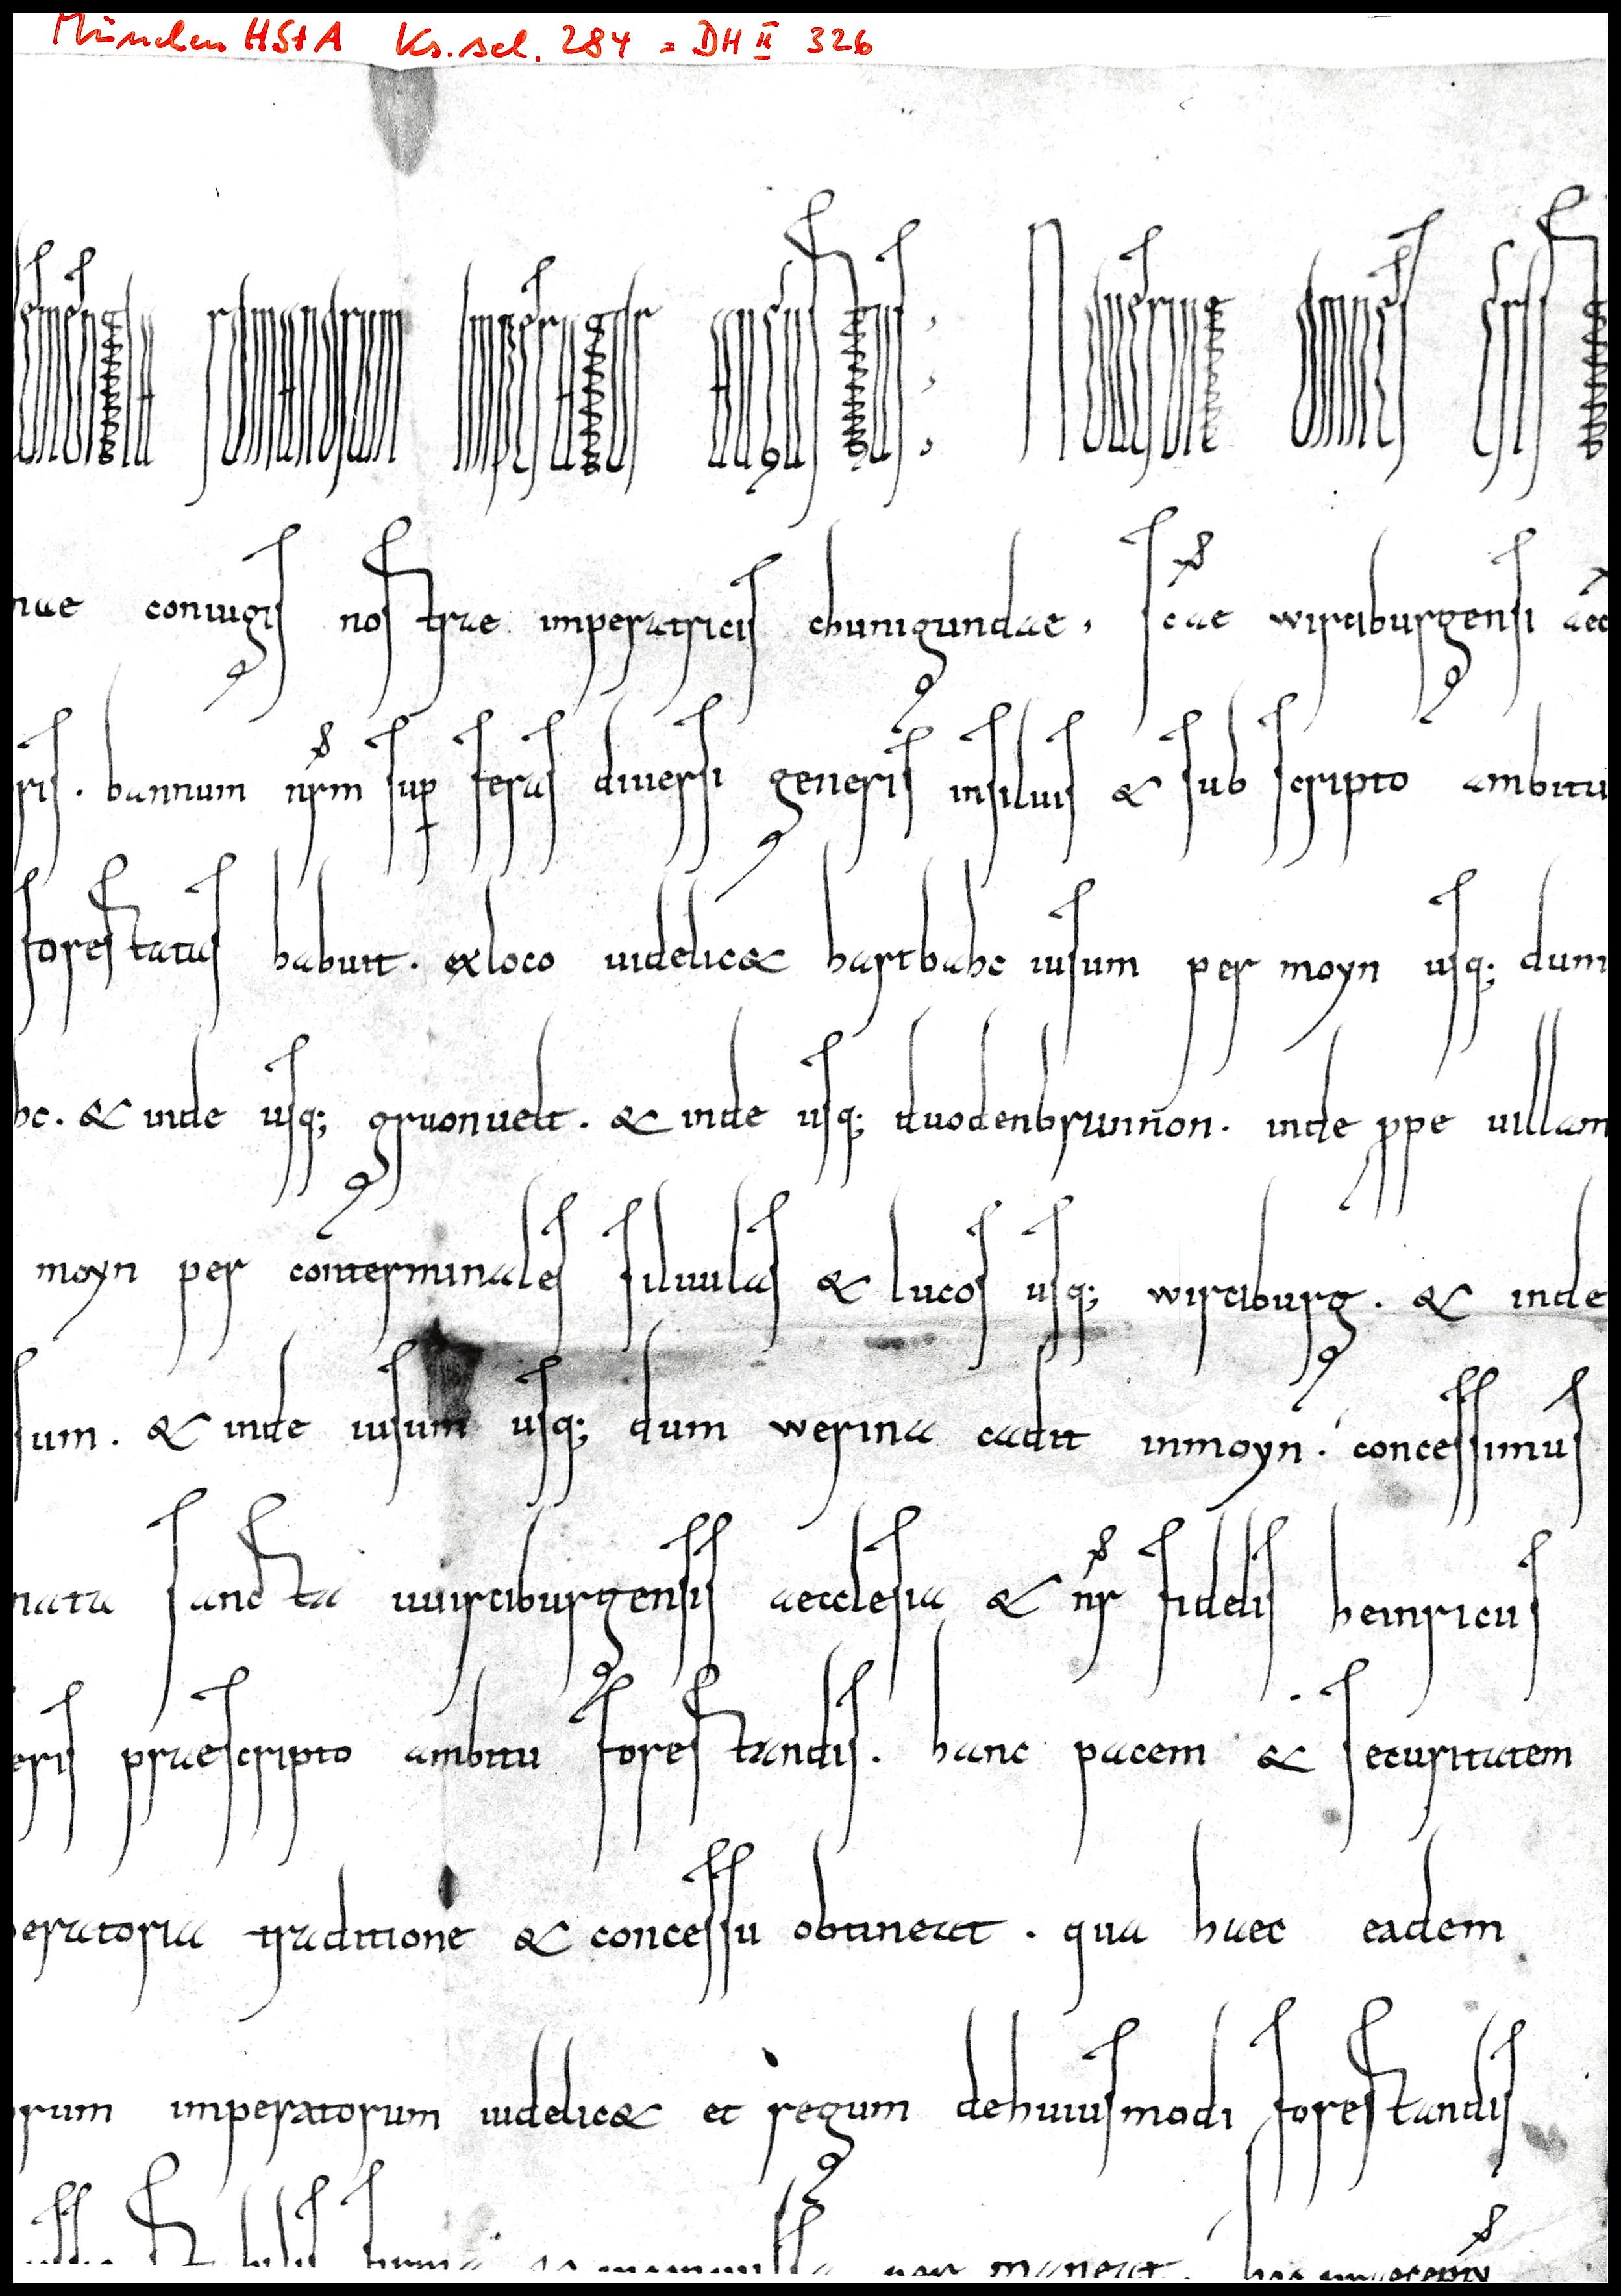 München HStA Ks. sel. 284 = DH II 326
clementia romanorum imperator augustus. Noverint omnes Christi
nae coniugis nostrae imperatricis chunigundae, scae wirciburgensi aec
ris. bannum nrm sup feras diversi generis insilvis & sub scripto ambitu
forestatus habuit. exloco videlic& hartbahc iusum per moyn usq; dum
hc. & inde usq; gruonvelt. & inde usq; duodenbrunnon. inde ppe villam
moyn per conterminales silvulas & lucos usq; wirciburg. & inde
sum. & inde iusum usq; dum werina cadit inmoyn. concessimus
nata sancta uuirciburgensis aecclesia & nr fidelis heinricus
eris praescripto ambitu forestandis. hanc pacem & securitatem
eratoria traditione & concessu obtineat. qua haec eadem
rum imperatorum videlic& et regum dehuiusmodi forestandis
non maneat.